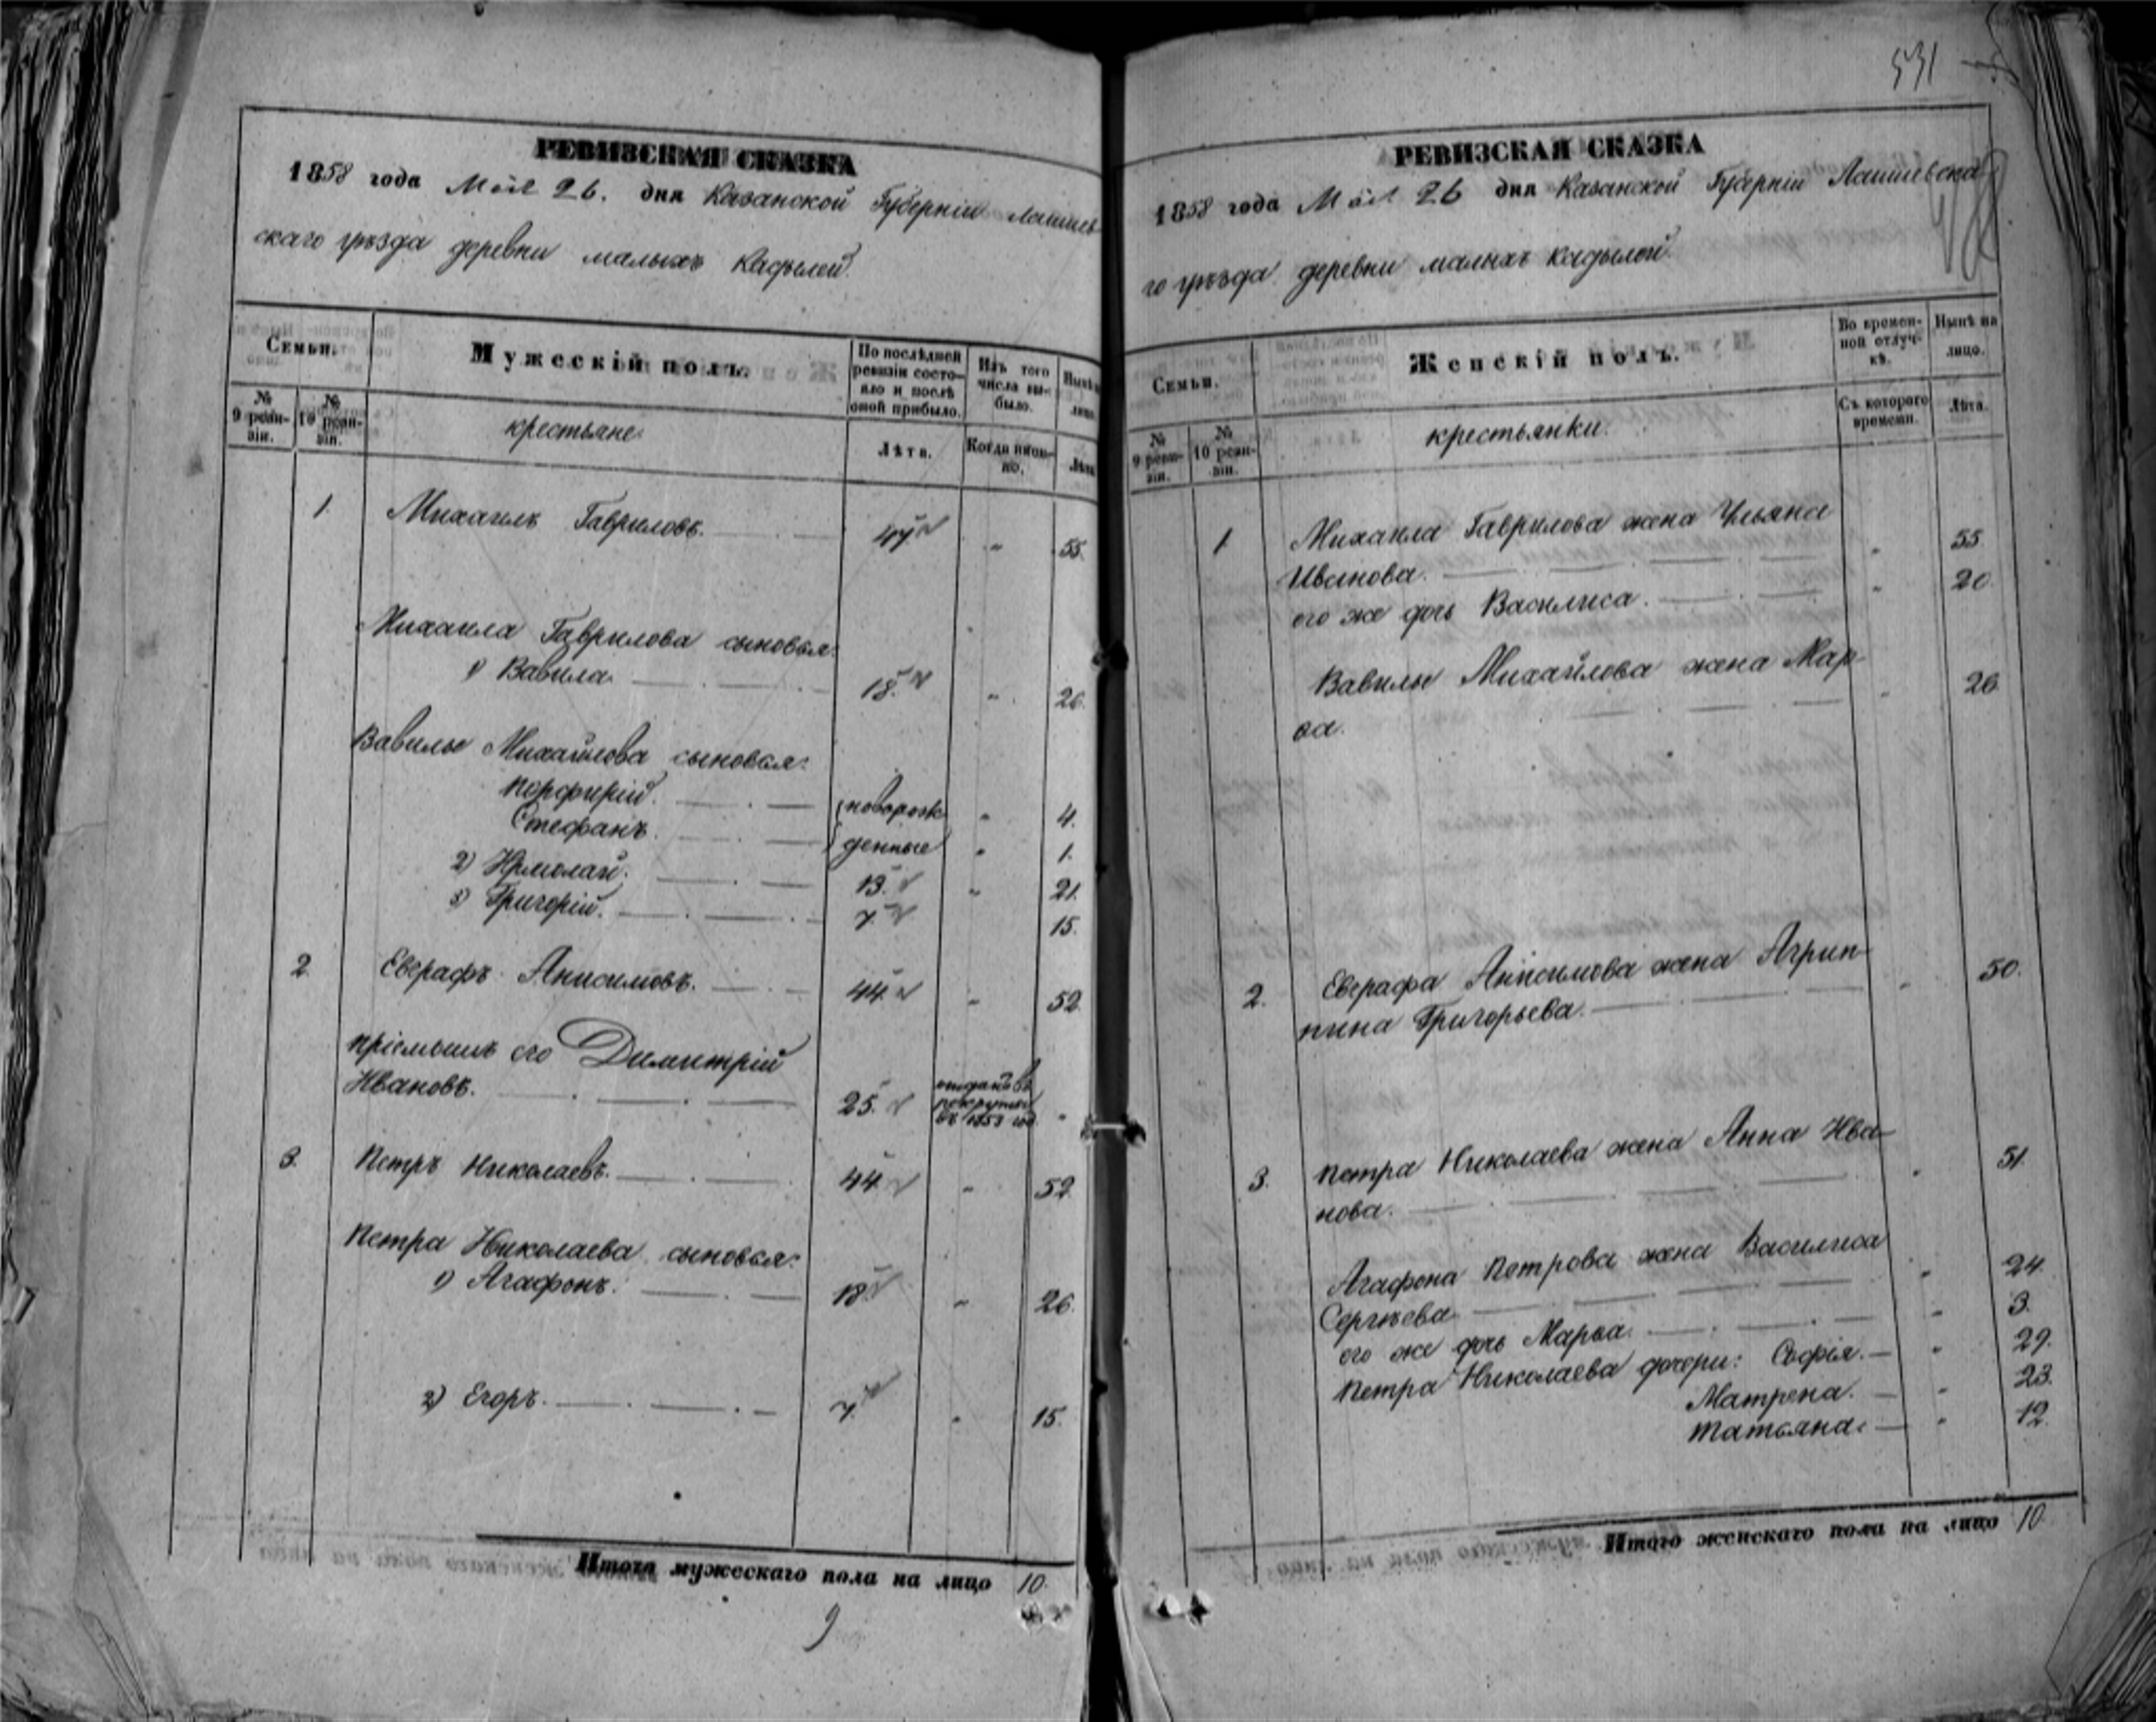 РЕВИЗСКАЯ СКАЗКА
1858 года Мая 26. дня Казанской Губерніи Лаишев
скаго уѣзда деревни малыхъ Кадылей.
Семьи.
Мужескій полъ.
По послѣдней ревизіи состояло и послѣ оной прибыло.
Изъ того числа выбыло.
Нынѣ на лицо.
№ 9 ревизіи.
№ 10 ревизіи.
крестьяне
Лѣта.
Когда имянно.
Лѣта
1. Михаилъ Гавриловъ. 47 " 55.
Михаила Гаврилова сыновья:
1) Вавила. 18. " 26.
Вавилы Михайлова сыновья:
Порфирій. новорож " 4.
Стефанъ. денные " 1.
2) Ирмолай. 13. " 21.
3) Григорій. 7. 15.
2. Еверафъ Анисимовъ. 44. " 52.
пріемышъ его Димитрій
Ивановъ. 25. отданъ въ рекруты въ 1853 год. "
3. Петръ Николаевъ. 44. " 52.
Петра Николаева сыновья:
1) Агафонъ. 18. " 26.
2) Егоръ. 7. " 15.
Итого мужескаго пола на лицо 10.
9
531
РЕВИЗСКАЯ СКАЗКА
1858 года Мая 26 дня Казанской Губерніи Лаишевска
го уѣзда деревни малыхъ Кадылей.
Семьи.
Женскій полъ.
Во временной отлучкѣ.
Нынѣ на лицо.
№ 9 ревизіи.
№ 10 ревизіи.
крестьянки.
Съ котораго времени.
Лѣта.
1. Михаила Гаврилова жена Ульяна
Иванова. " 55.
его же дочь Василиса. " 20.
Вавилы Михайлова жена Мар-
ѳа. " 26.
2. Еверафа Анисимова жена Агрип-
пина Григорьева. " 50.
3. Петра Николаева жена Анна Ива-
нова. " 51.
Агафона Петрова жена Василиса
Сергѣева " 24.
его же дочь Марья. " 3.
Петра Николаева дочери: Софія. " 29.
Матрена. " 23.
Татьяна. " 12.
Итого женскаго пола на лицо 10.